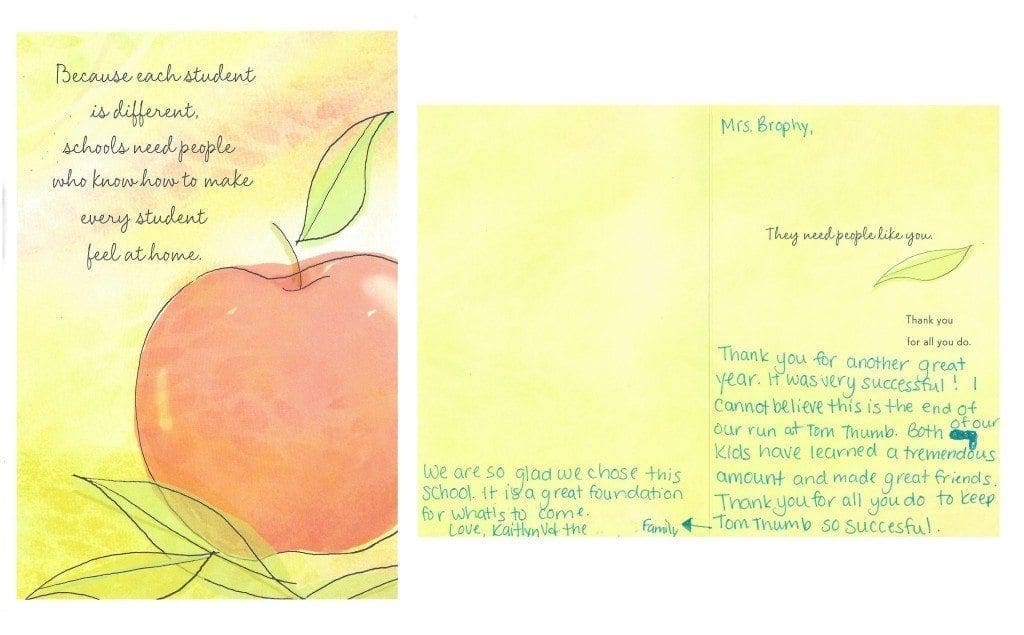 Because each student
is different,
schools need people
who know how to make
every student
feel at home.
Mrs. Brophy,
They need people like you.
Thank you
for all you do.
Thank you for another great
year. It was very successful! I
cannot believe this is the end of
our run at Tom Thumb. Both of our
kids have learned a tremendous
amount and made great friends.
Thank you for all you do to keep
Tom Thumb so succesful.
We are so glad we chose this
school. It is a great foundation
for what is to come.
Love, Kaitlyn the Family